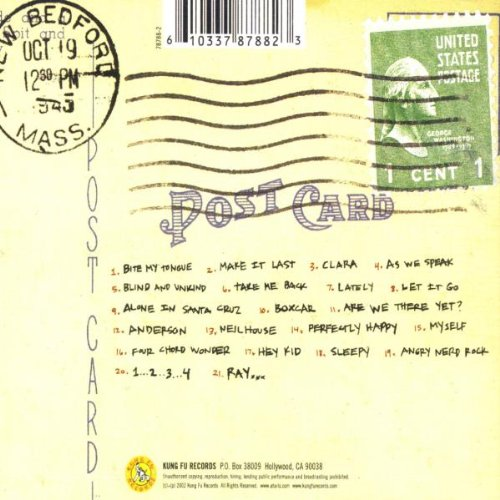 NEW BEDFORD
OCT 19
12 30 PM
MASS.
78788-2
6 10337 87882 3
UNITED
STATES
POSTAGE
GEORGE WASHINGTON
1 CENT 1
POST CARD
POST CARD
1. BITE MY TONGUE 2. MAKE IT LAST 3. CLARA 4. AS WE SPEAK
5. BLIND AND UNKIND 6. TAKE ME BACK 7. LATELY 8. LET IT GO
9. ALONE IN SANTA CRUZ 10. BOXCAR 11. ARE WE THERE YET?
12. ANDERSON 13. NEILHOUSE 14. PERFECTLY HAPPY 15. MYSELF
16. FOUR CHORD WONDER 17. HEY KID 18. SLEEPY 19. ANGRY NERD ROCK
20. 1...2...3...4 21. RAY...
KUNG FU RECORDS P.O. Box 38009 Hollywood, CA 90038
Unauthorized copying, reproduction, hiring, lending public performance and broadcasting prohibited.
(c)+(p) 2002 Kung Fu Records. All Rights Reserved. www.kungfurecords.com